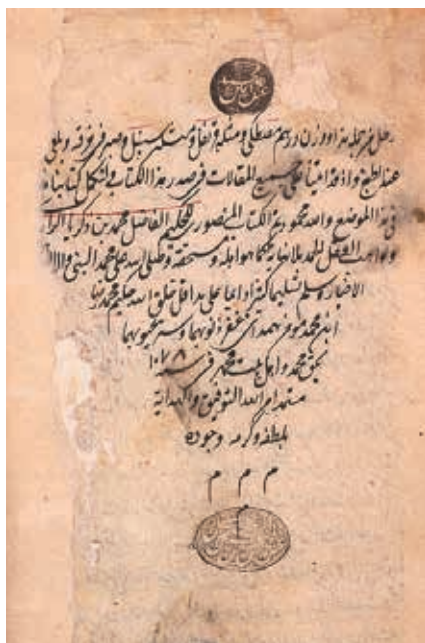 رطل من جمله هذا وزن درهم مصطكى ومثله قرنفل ومثله سنبل وصير فى خرقه ويلقى
عند الطبخ واذ قد اتينا على جميع المقالات فى صدر هذا الكتاب فلنكمل كتابنا
فى هذا الموضع والله محمود تم الكتاب المنصورى للحكيم الفاضل محمد بن زكريا الرازى
ولواهب العقل الحمد بلا نهاية كما هو اهله ومستحقه وصلى الله على محمد النبى واله
الاخيار وسلم تسليما كثيرا دايما على يد اقل خلق الله حكيم محمد رضا
ابن محمد مومن همدانى غفر ذنوبهما وستر عيوبهما
بحق محمد واهل بيت محمد فى سنة ١٠٧٨
مستمدا من الله التوفيق والهداية
بلطفه وكرمه وجوده
م م م
م